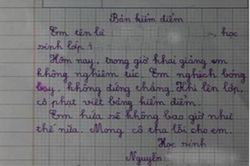 Bản kiểm điểm
Em tên là , học
sinh lớp 1
Hôm nay, trong giờ khai giảng em
không nghiêm túc. Em nghịch bóng
bay, không đứng chàng. Khi lên lớp,
cô phạt viết bảng kiểm điểm.
Em hứa sẽ không bao giờ như
thế nữa. Mong cô tha lỗi cho em.
Học sinh
Nguyễn